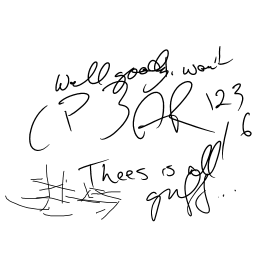 Well good, won't
CP 3AR 123
6
Thees is all
guff...